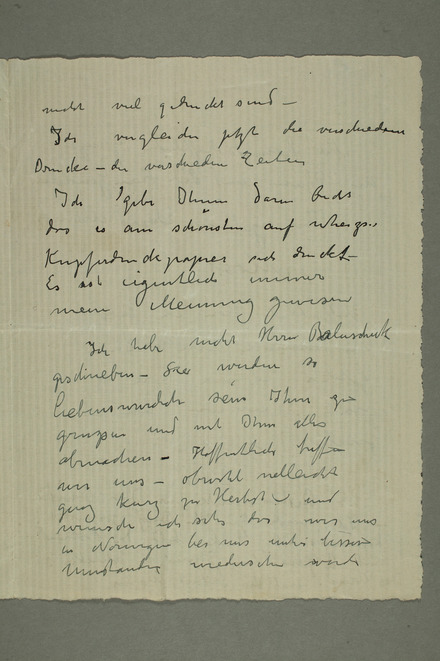 nicht viel gedruckt sind –
Ich vergleiche jetzt die verschiedenen
Drucke – die verschieden Zeiten
Ich gebe Ihnen dann Recht
das es am schönsten auf
Kupferdruckpapier sich druckt –
Es ist eigentlich immer
meine Meinung gewesen
Ich habe nicht Herrn
geschrieben – Sie werden so
liebenswürdig sein Ihm zu
grüssen und mit Ihm alles
abmachen – Hoffentlich treffen
wir uns – obwohl vielleicht
ganz kurz zu Herbst – und
wünsche ich sehr das wir uns
in Norwegen bei uns unter bessern
Umständen wiedersehen werde